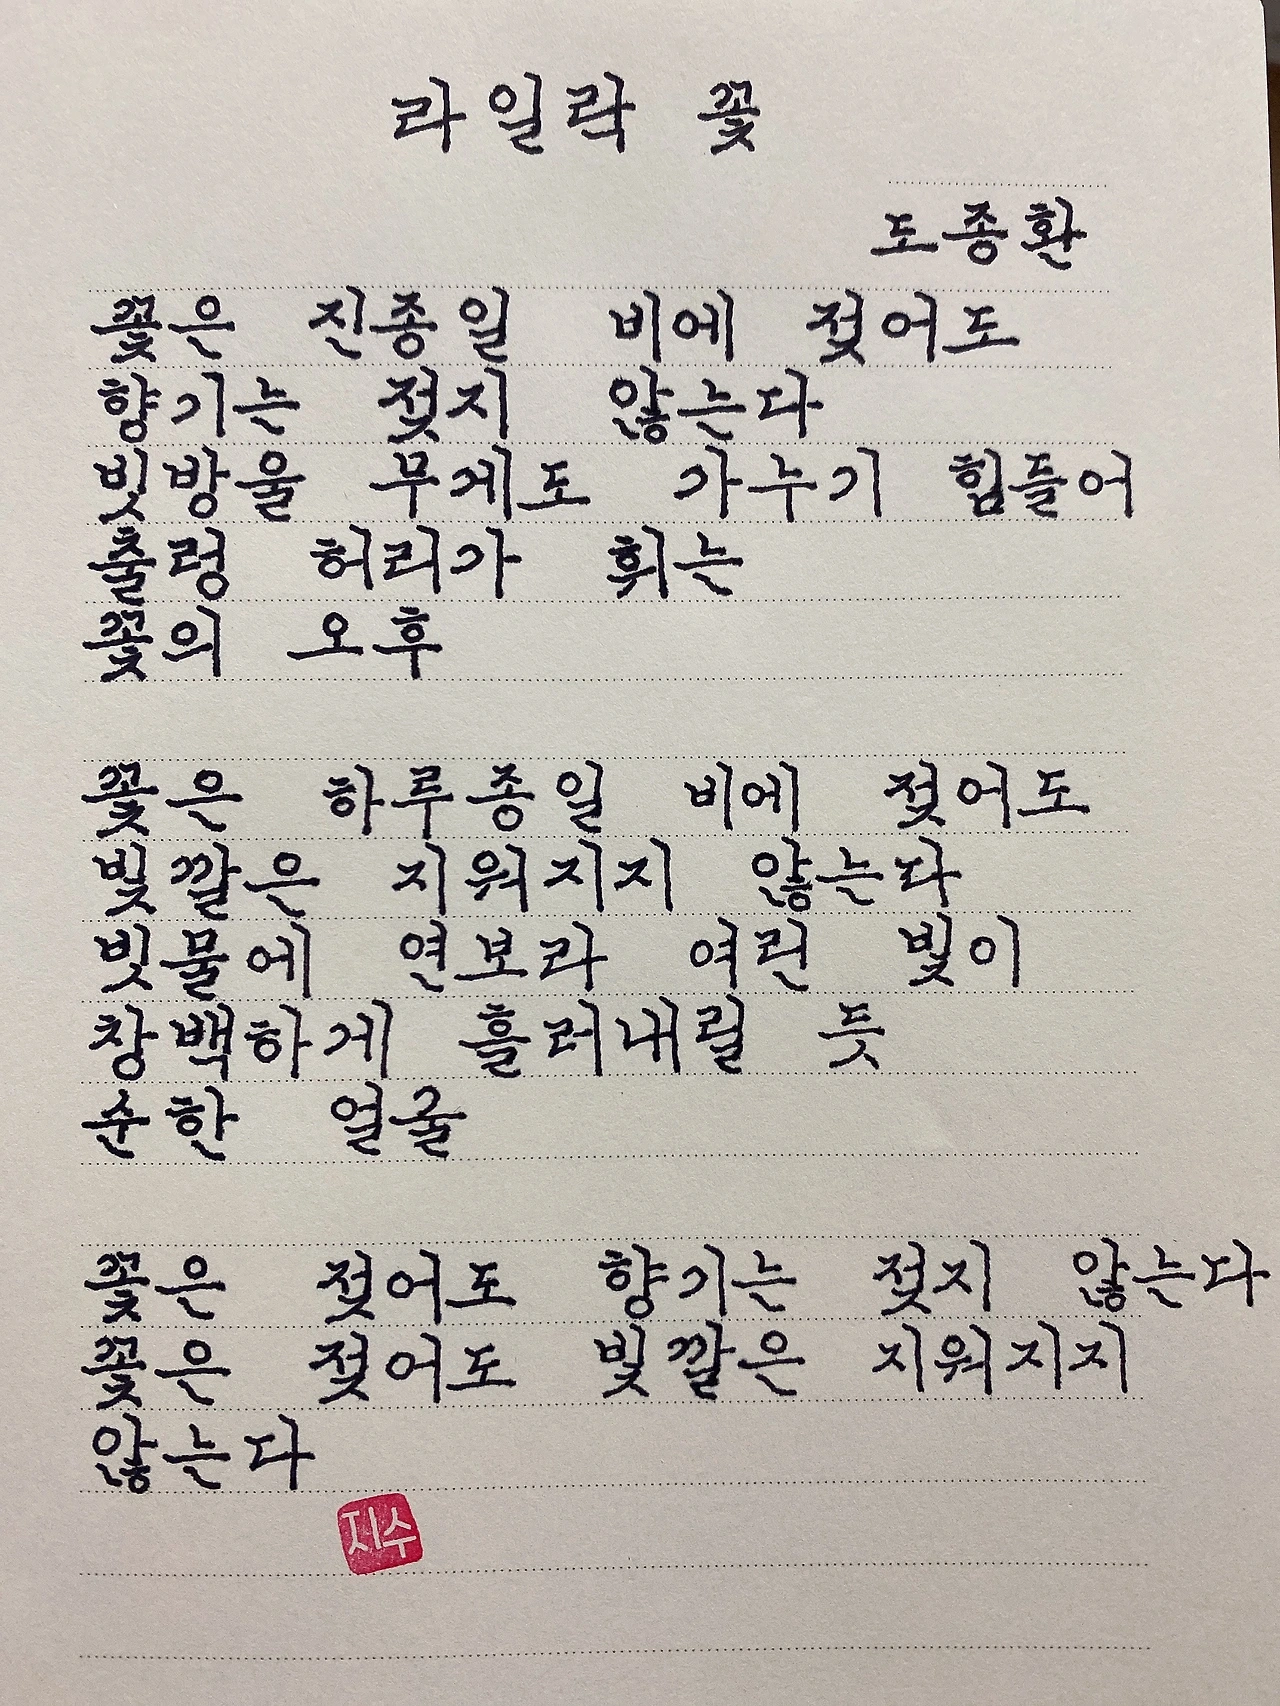 라일락 꽃
도종환
꽃은 진종일 비에 젖어도
향기는 젖지 않는다
빗방울 무게도 가누기 힘들어
출렁 허리가 휘는
꽃의 오후
꽃은 하루종일 비에 젖어도
빛깔은 지워지지 않는다
빗물에 연보라 여린 빛이
창백하게 흘러내릴 듯
순한 얼굴
꽃은 젖어도 향기는 젖지 않는다
꽃은 젖어도 빛깔은 지워지지
않는다
지수